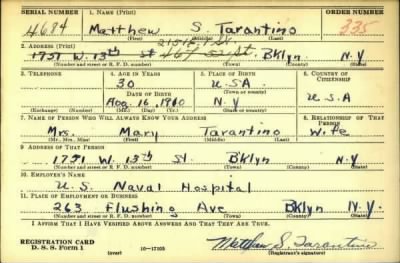 SERIAL NUMBER 1. NAME (Print) ORDER NUMBER
4684 Matthew S. Tarantino 335
(First) (Middle) (Last)
2. ADDRESS (Print)
1751 W. 13th St Bklyn N.Y
(Number and street or R. F. D. number) (Town) (County) (State)
3. TELEPHONE 4. AGE IN YEARS 5. PLACE OF BIRTH 6. COUNTRY OF CITIZENSHIP
30 U.S.A
DATE OF BIRTH (Town) (County)
Aug. 16, 1910 N.Y U.S.A
(Exchange) (Number) (Mo.) (Day) (Yr.) (State or country)
7. NAME OF PERSON WHO WILL ALWAYS KNOW YOUR ADDRESS 8. RELATIONSHIP OF THAT PERSON
Mrs. Mary Tarantino Wife
(Mr., Mrs., Miss) (First) (Middle) (Last)
9. ADDRESS OF THAT PERSON
1751 W. 13th St. Bklyn N.Y
(Number and street or R. F. D. number) (Town) (County) (State)
10. EMPLOYER'S NAME
U.S. Naval Hospital
11. PLACE OF EMPLOYMENT OR BUSINESS
263 Flushing Ave Bklyn N.Y.
(Number and street or R. F. D. number) (Town) (County) (State)
I AFFIRM THAT I HAVE VERIFIED ABOVE ANSWERS AND THAT THEY ARE TRUE.
REGISTRATION CARD
D. S. S. Form 1 (over) 16—17105 Matthew S. Tarantino
(Registrant's signature)